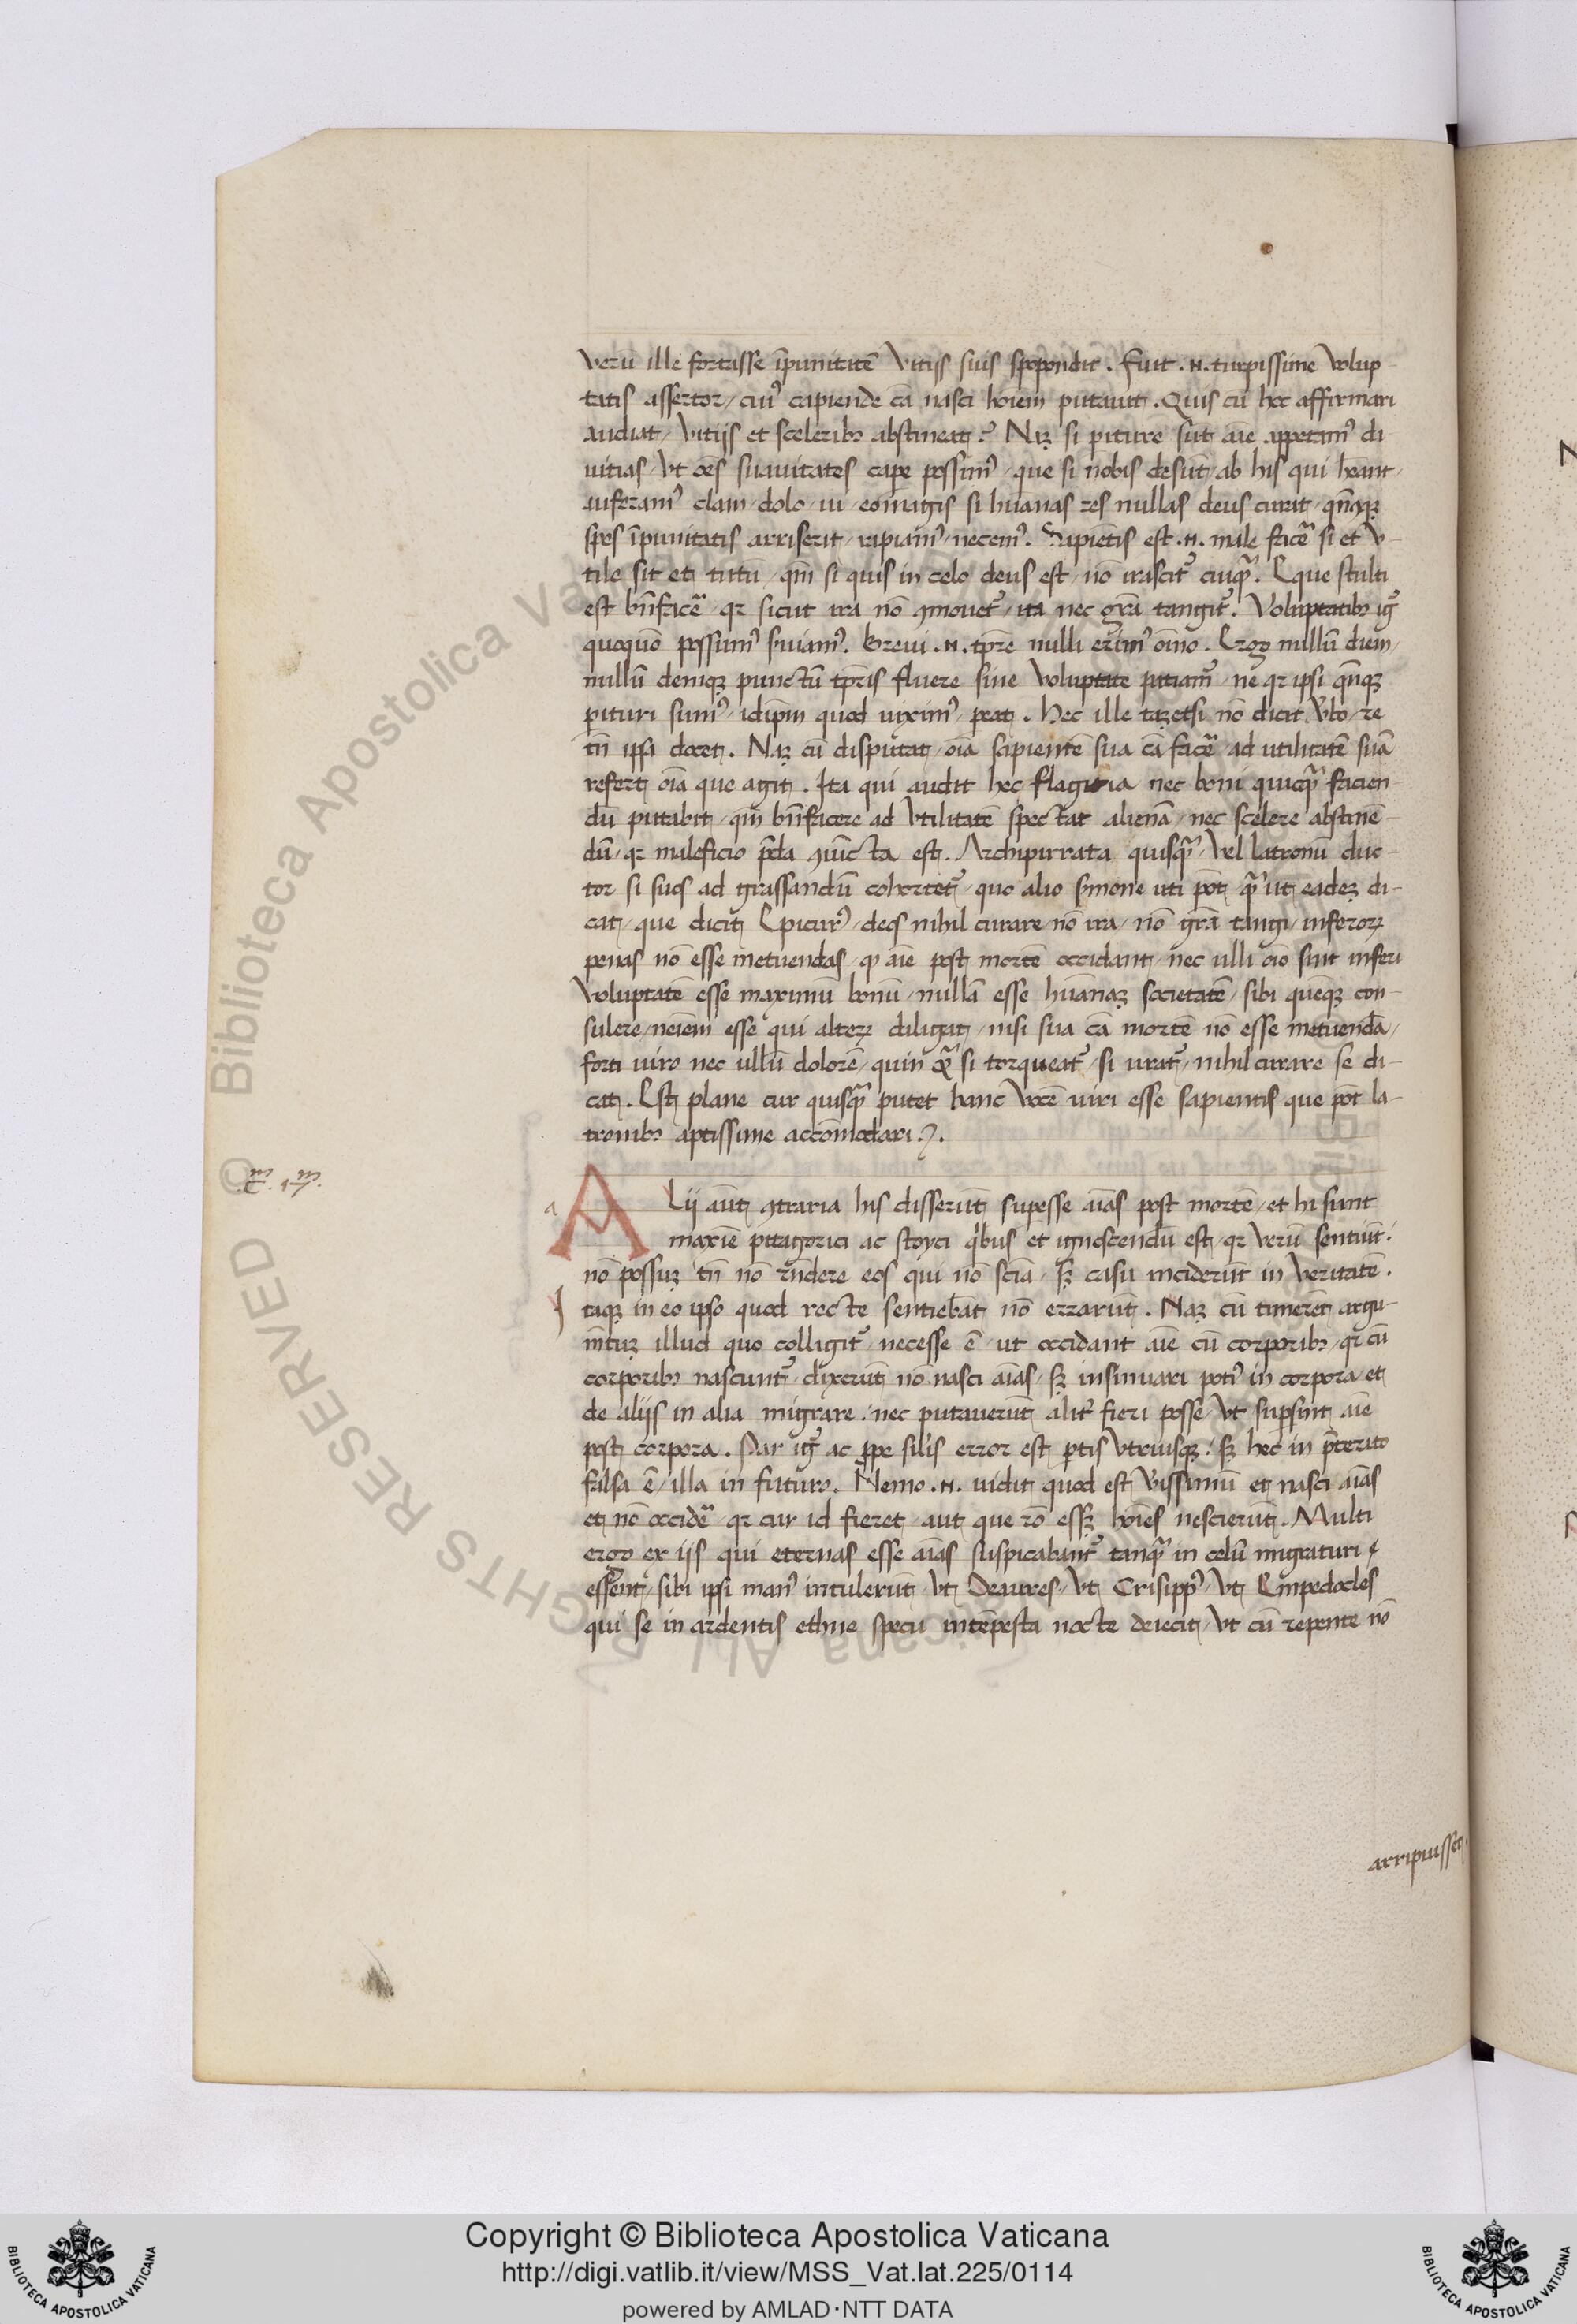 verū ille fortasse īpunitatē vitijs suis spopondit. fuit .n. turpissime volup-
tatis assertor/ cuiꝰ capiende cā nasci hoīem putauit. Quis cū hoc affirmari
audiat/ vitijs et sceleribꝫ abstineat? Naꝫ si ꝑiture sūt aīe appetamꝰ di
uitias/ vt oēs suauitates caꝑe possimꝰ/ que si nobis desūt/ ab his qui hēant/
auferamꝰ clam/ dolo/ ui/ eomagis si huānas res nullas deus curat/ qn̄qꝫ
spes īpunitatis arriserit/ rapiamꝰ/ necemꝰ. Sapiētis est .n. male facē si et v-
tile sit et tutū/ qm̄ si quis in celo deus est/ nō irascit᷑ cuiqᷓ. Eque stulti
est bn̄facē/ qꝛ sicut ira nō ꝯmouet᷑/ ita nec grā tangit᷑. Voluptatibꝫ ig᷑
quoquō possumꝰ ẜuiamꝰ. Breui .n. tp̄re nulli erimꝰ oīno. Ergo nullū diem/
nullū deniqꝫ punctū tp̄ris fluere sine voluptate patiam᷑/ ne qꝛ ipsi qn̄qꝫ
ꝑituri sumꝰ/ idip̄m quod uiximꝰ/ ꝑeat. Hec ille taꝫetsi nō dicit v̄bo/ re
tn̄ ipsa docet. Naꝫ cū disputat/ oīa sapientē sua cā facē/ ad utilitatē suā
refert oīa que agit. Ita qui audit hec flagitia nec boni quicqᷓ facien-
dū putabit/ qm̄ bn̄facere ad vtilitatē spectat alienā/ nec scelere abstinē-
dū/ qꝛ maleficio p̄da ꝯiūcta est. Archipirrata quisqᷓ/ vel latronū duc-
tor si suos ad grassandū cohortet᷑/ quo alio ẜmone uti pōt qᷓ ut eadeꝫ di-
cat/ que dicit Epicurꝰ/ deos nihil curare/ nō ira/ nō grā tangi/ inferoꝝ
penas nō esse metuendas/ ꝙ aīe post mortē occidant/ nec ulli oīo sint inferi
Voluptatē esse maximū bonū/ nullā esse huānaꝫ societatē/ sibi quēqꝫ con-
sulere/ neīem esse qui alteꝝ diligat/ nisi sua cā mortē nō esse metuendā/
forti uiro nec ullū dolorē/ quin qᷓ si torqueat᷑/ si urat᷑/ nihil curare se di-
cat. Est plane cur quisqᷓ putet hanc vocē uiri esse sapientis que pōt la-
tronibꝫ aptissime accōmodari?.
a
Alii aūt ꝯtraria his disserūt suꝑesse aīas post mortē/ et hi sunt
maxīe pitagorici ac stoyci qͥbus et ignoscendū est/ qꝛ verū sentiūt/
nō possuꝫ tn̄ nō rn̄dere eos qui nō sciā/ sꝫ casu inciderūt in veritatē.
Itaqꝫ in eo ipso quod recte sentiebāt nō errarūt. Naꝫ cū timerēt argu-
mtuꝫ illud quo colligit᷑/ necesse ē/ ut occidant aīe cū corporibꝫ/ qꝛ cū
corporibꝫ nascunt᷑/ dixerūt nō nasci aīas/ sꝫ insinuari potiꝰ in corpora/ et
de alijs in alia migrare/ nec putauerūt alit᷑ fieri posse vt suꝑsint aīe
post corpora. Par ig᷑ ac ꝓpe silis error est ꝑtis vtriusqꝫ/ sꝫ hec in p̄terito
falsa ē/ illa in futuro. Nemo .n. vidit quod est v̄issimū et nasci aīas
et nō occidē/ qꝛ cur id fieret/ aut que rō essꝫ hoīes nescierūt. Multi
ergo ex iis qui eternas esse aīas suspicabant᷑ tanqᷓ in celū migraturi
essent/ sibi ipsi manꝰ intulerūt/ vt Deantes/ vt Crisippꝰ/ vt Empedocles
qui se in ardentis ethne specu intēpesta nocte deiecit/ vt cū repente nō
arripuisset.
Copyright © Biblioteca Apostolica Vaticana
http://digi.vatlib.it/view/MSS_Vat.lat.225/0114
powered by AMLAD·NTT DATA
BIBLIOTECA APOSTOLICA VATICANA
BIBLIOTECA APOSTOLICA VATICANA